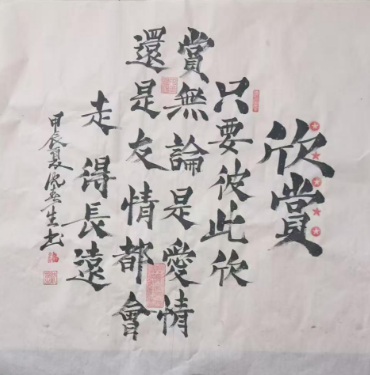 欣賞
只要彼此欣
賞無論是愛情
還是友情都會
走得長遠
甲辰夏